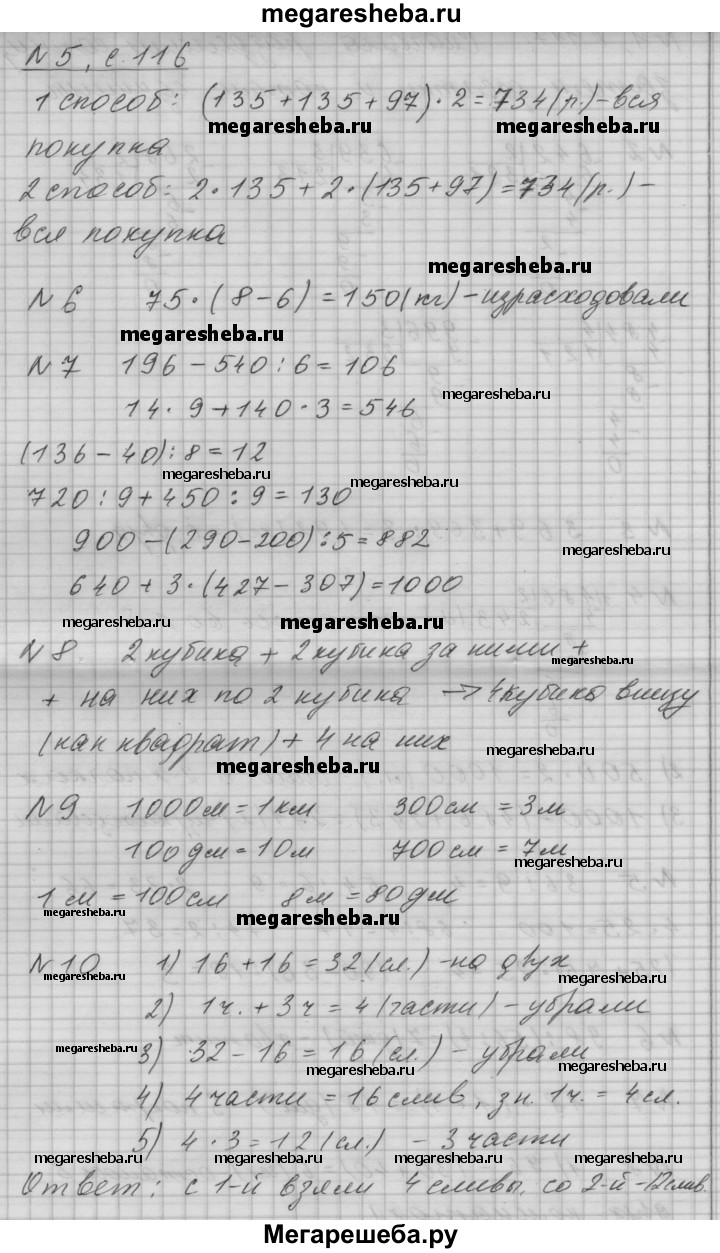 megaresheba.ru
N 5, с. 116
1 способ: (135+135+97)·2=734(р.)-вся
megaresheba.ru megaresheba.ru
покупка
2 способ: 2·135+2·(135+97)=734(р.)-
вся покупка
megaresheba.ru
N 6 75·(8-6)=150(кг)-израсходовали
megaresheba.ru
N 7 196-540:6=106
megaresheba.ru
14·9+140·3=546
(136-40):8=12
megaresheba.ru
megaresheba.ru
720:9+450:9=130
900-(290-200):5=882
megaresheba.ru
640+3·(427-307)=1000
megaresheba.ru megaresheba.ru
N 8. 2 кубика + 2 кубика за ними +
megaresheba.ru
+ на них по 2 кубика → 4 кубика внизу
(как квадрат) + 4 на них
megaresheba.ru
megaresheba.ru
N 9 1000м=1км 300см=3м
100дм=10м 700см=7м
megaresheba.ru
1м=100см 8м=80дм
megaresheba.ru megaresheba.ru
N 10 1) 16+16=32(сл.)-на двух
megaresheba.ru
2) 1ч.+3ч=4(части)-убрали
megaresheba.ru
3) 32-16=16(сл.)-убрали
megaresheba.ru
4) 4 части=16 слив, зн. 1ч.=4сл.
megaresheba.ru
5) 4·3=12(сл.) - 3 части
megaresheba.ru megaresheba.ru megaresheba.ru megaresheba.ru
Ответ: с 1-й взяли 4 сливы, со 2-й-12слив.
Мегарешеба.ру